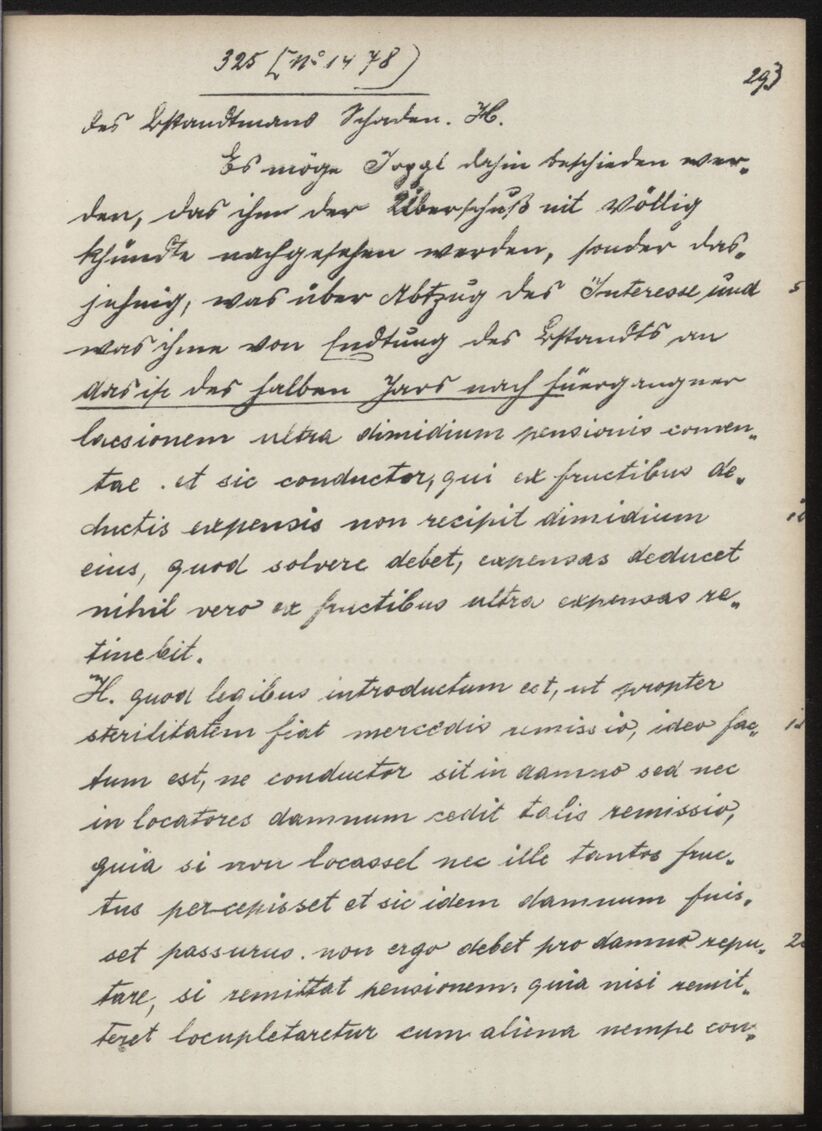 325 [N° 1478)
293
des Bstandtmans Schaden. H.
Es möge Joppl dahin beschieden wer„
den, das ihm der Überschuß nit völlig
khündte nachgesehen werden, sonder das„
jehnig, was über Abtzug des Interesse und 5
was ihme von Endtung des Bstandts an
das ist des halben Jars nach füergangner
laesionem ultra dimidium pensionis conven„
tae . et sic conductor, qui ex fructibus de„
ductis expensis non recipit dimidium
eius, quod solvere debet, expensas deducet
nihil vero ex fructibus ultra expensas re„
tinebit.
H. quod legibus introductum est, ut propter
sterilitatem fiat mercedis remissio, ideo fac„
tum est, ne conductor sit in damno sed nec
in locatores damnum cedit talis remissio,
quia si non locassel nec ille tantos fruc„
tus percepisset et sic idem damnum fuis„
set passurus. non ergo debet pro damno repu„
tare, si remittat pensionem, quia nisi remit„
teret locupletaretur cum aliena nempe con„